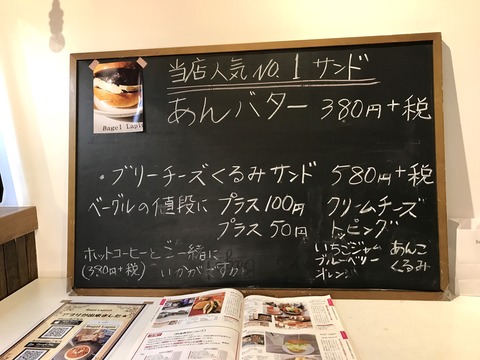 当店人気 NO.1 サンド
あんバター 380円+税
Bagel Lapin
・ブリーチーズくるみサンド 580円+税
ベーグルの値段に プラス100円 クリームチーズ
プラス50円 トッピング
いちごジャム あんこ
ブルーベリー くるみ
オレンジ
ホットコーヒーとご一緒に
(380円+税) いかがですか